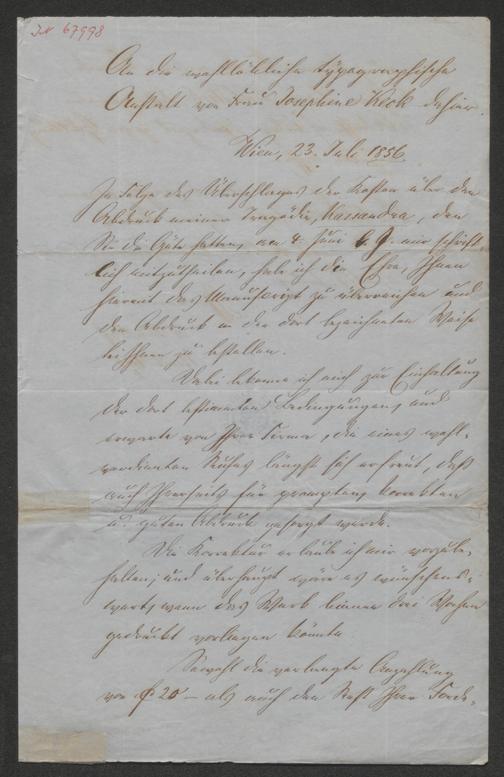 IN 67998
An die wohllöbliche typographische
Anstalt von Frau Josephine Keck dahier.
Wien, 23. Juli 1856.
In Folge des Überschlages der Kosten über den
Abdruck meiner Tragödie, Kassandra, den
Sie die Güte hatten, am 4. Juni l. J. mir schrift-
lich mitzutheilen, habe ich die Ehre, Ihnen
hiermit das Manuscript zu überreichen und
den Abdruck in der dort bezeichneten Weise
bei Ihnen zu bestellen.
Dabei bekenne ich mich zur Einhaltung
der dort bestimmten Bedingungen, und
erwarte von Ihrer Firma, die eines wohl-
verdienten Rufes längst sich erfreut, daß
auch Ihrerseits für prompten, korrekten
u. guten Abdruck gesorgt werde.
Die Korrektur erlaube ich mir vorzube-
halten; und überhaupt wäre es wünschens-
werth, wenn das Werk binnen drei Wochen
gedruckt vorliegen könnte.
Sowohl die verlangte Anzahlung
von f 20 – als auch den Rest Ihrer Forde-